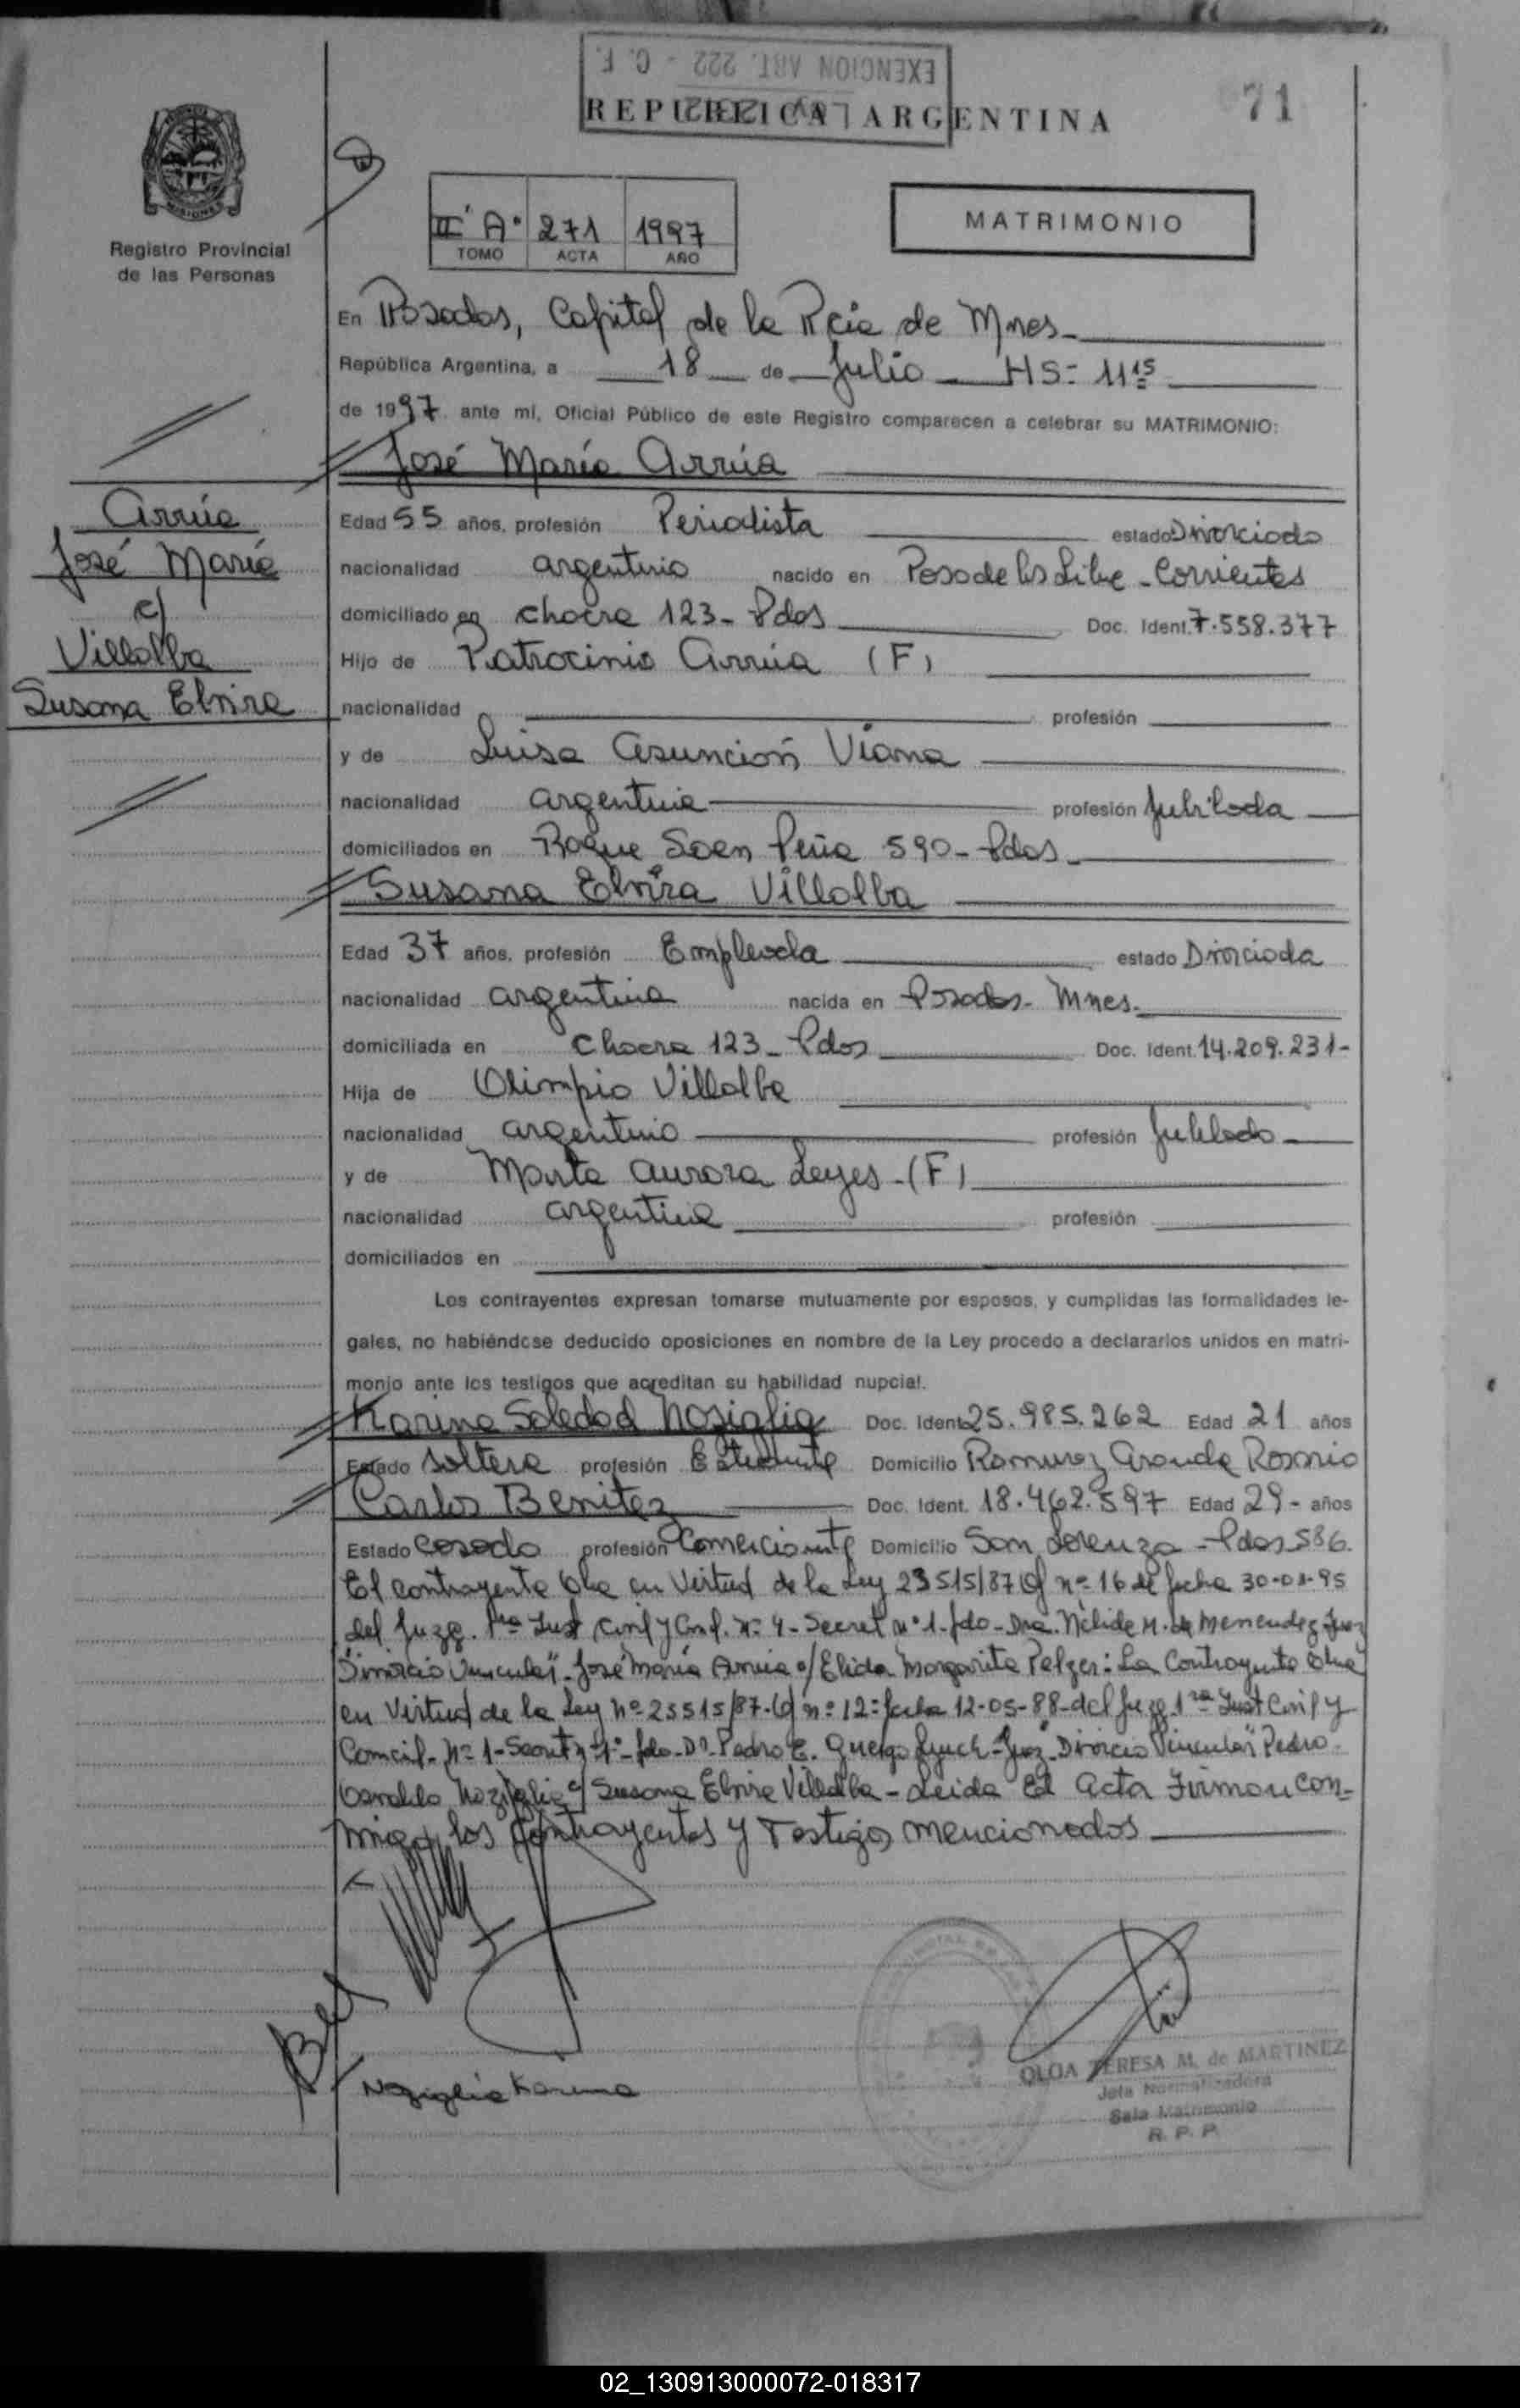 EXENCION ART. 222 - C. F.
REPUBLICA ARGENTINA
71
MISIONES
Registro Provincial
de las Personas
II A° 271 1997
TOMO ACTA AÑO
MATRIMONIO
En Posadas, Capital de la Pcia de Mnes-
República Argentina, a 18 de Julio HS= 11 15
de 1997 ante mi, Oficial Público de este Registro comparecen a celebrar su MATRIMONIO:
José María Arrúa
Arrúa
José María
c/
Villalba
Susana Elvira
Edad 55 años, profesión Periodista estado Divorciado
nacionalidad argentino nacido en Paso de los Libre - Corrientes
domiciliado en chacra 123 - Pdas Doc. Ident. 7.558.377
Hijo de Patrocinio Arrúa (F)
nacionalidad profesión
y de Luisa Asunción Viana
nacionalidad argentina profesión Jubilada
domiciliados en Roque Saen Peña 590 - Pdas -
Susana Elvira Villalba
Edad 37 años, profesión Empleada estado Divorciada
nacionalidad argentina nacida en Posadas - Mnes.
domiciliada en Chacra 123 - Pdas Doc. Ident. 14.209.231-
Hija de Olimpio Villalba
nacionalidad argentino profesión Jubilado
y de Marta Aurora Leyes - (F)
nacionalidad argentina profesión
domiciliados en
Los contrayentes expresan tomarse mutuamente por esposos, y cumplidas las formalidades le-
gales, no habiéndose deducido oposiciones en nombre de la Ley procedo a declararlos unidos en matri-
monio ante los testigos que acreditan su habilidad nupcial.
Karina Soledad Nosiglia Doc. Ident. 25.985.262 Edad 21 años
Estado soltera profesión Estudiante Domicilio Rosario
Carlos Benitez Doc. Ident. 18.462.597 Edad 29 - años
Estado casado profesión Comerciante Domicilio San Lorenzo - Pdas 586.
El contrayente en Virtud de la Ley 23515/87 Of nº 16 de fecha 30-01-95
del Juzg. 1ra Inst Civil y Nº 4 - Secret nº 1 - fdo - Dra. Nélida M. de Menendez Juez
Divorcio Vincular". José María Arrúa c/ Elida Margarita Pelzer: La Contrayente
en Virtud de la Ley Nº 23515/87 - Of nº 12 = fecha 12-05-88 - del Juzg. 1ra Inst Civil y
Comercial - Nº 1 - Secret nº 1 - fdo - Dr. Pedro E. Lynch - Juez - Divorcio Vincular" Pedro
Osvaldo Noziglia c/ Susana Elvira Villalba - Leida El Acta Firman con-
migo, los Contrayentes y Testigos mencionados
Noziglia Karina
OLGA TERESA M. de MARTINEZ
Jefa Normalizadora
Sala Matrimonio
R. P. P.
02_130913000072-018317